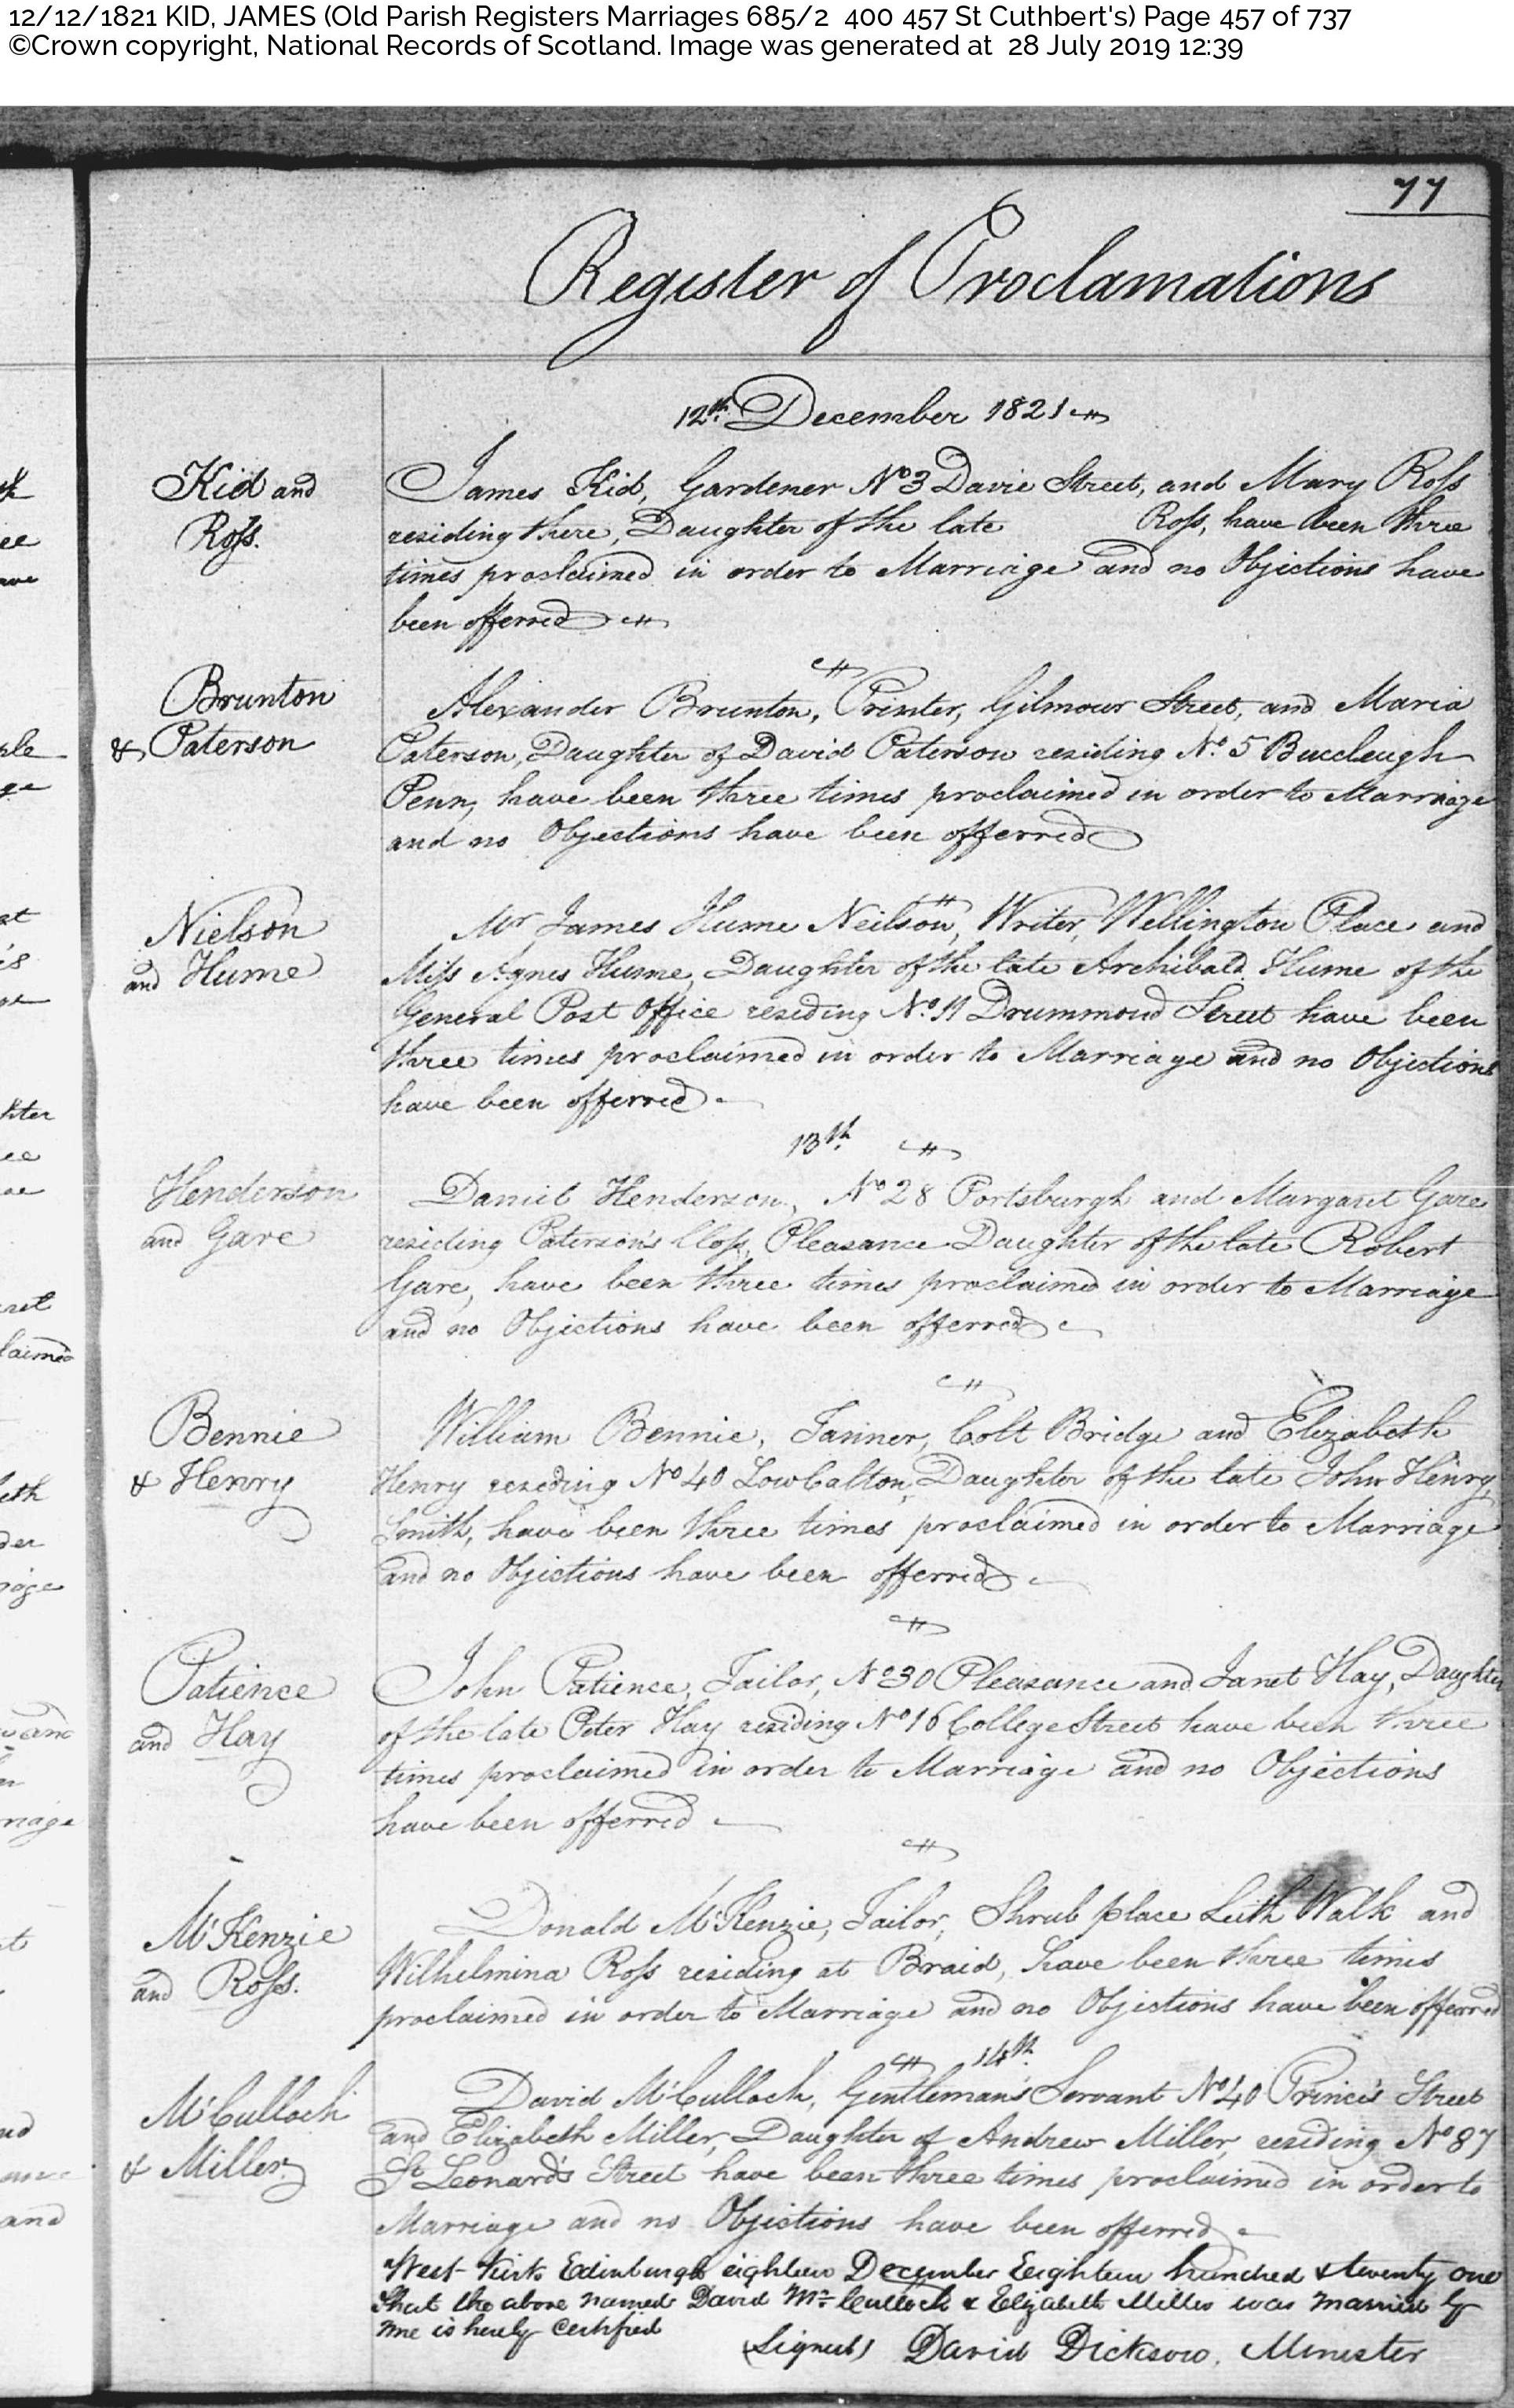 12/12/1821 KID, JAMES (Old Parish Registers Marriages 685/2 400 457 St Cuthbert's) Page 457 of 737
©Crown copyright, National Records of Scotland. Image was generated at 28 July 2019 12:39
77
Register of Proclamations
12th December 1821
Kid and
Ross.
James Kid, Gardener No 3 Davie Street, and Mary Ross
residing there, Daughter of the late Ross, have been three
times proclaimed in order to Marriage and no Objections have
been offerred
Brunton
& Paterson
Alexander Brunton, Printer, Gilmour Street, and Maria
Paterson, Daughter of David Paterson residing No. 5 Buccleugh
Penn, have been three times proclaimed in order to Marriage
and no Objections have been offerred
Nielson
and Hume
Mr James Hume Neilson, Writer, Wellington Place and
Miss Agnes Hume, Daughter of the late Archibald Hume of the
General Post Office residing No. 11 Drummond Street have been
three times proclaimed in order to Marriage and no Objections
have been offerred
13th
Henderson
and Gare
Daniel Henderson, No 28 Portsburgh and Margaret Gare
residing Paterson's Closs, Pleasance Daughter of the late Robert
Gare, have been three times proclaimed in order to Marriage
and no Objections have been offerred
Bennie
& Henry
William Bennie, Tanner, Colt Bridge and Elizabeth
Henry residing No 40 Low Calton, Daughter of the late John Henry,
Smith, have been three times proclaimed in order to Marriage
and no Objections have been offerred
Patience
and Hay
John Patience, Tailor, No 30 Pleasance and Janet Hay, Daughter
of the late Peter Hay residing No 16 College Street have been three
times proclaimed in order to Marriage and no Objections
have been offerred
McKenzie
and Ross.
Donald McKenzie, Tailor, Shrub place Leith Walk and
Wilhelmina Ross residing at Braid, have been three times
proclaimed in order to Marriage and no Objections have been offerred
14th
McCulloch
& Miller
David McCulloch, Gentleman's Servant No 40 Prince's Street
and Elizabeth Miller, Daughter of Andrew Miller, residing No 87
St Leonard's Street have been three times proclaimed in order to
Marriage and no Objections have been offerred
West Kirk Edinburgh eighteen December Eighteen hundred & twenty one
That the above named David McCulloch & Elizabeth Miller was married by
me is hereby Certified
(Signed) David Dickson, Minister